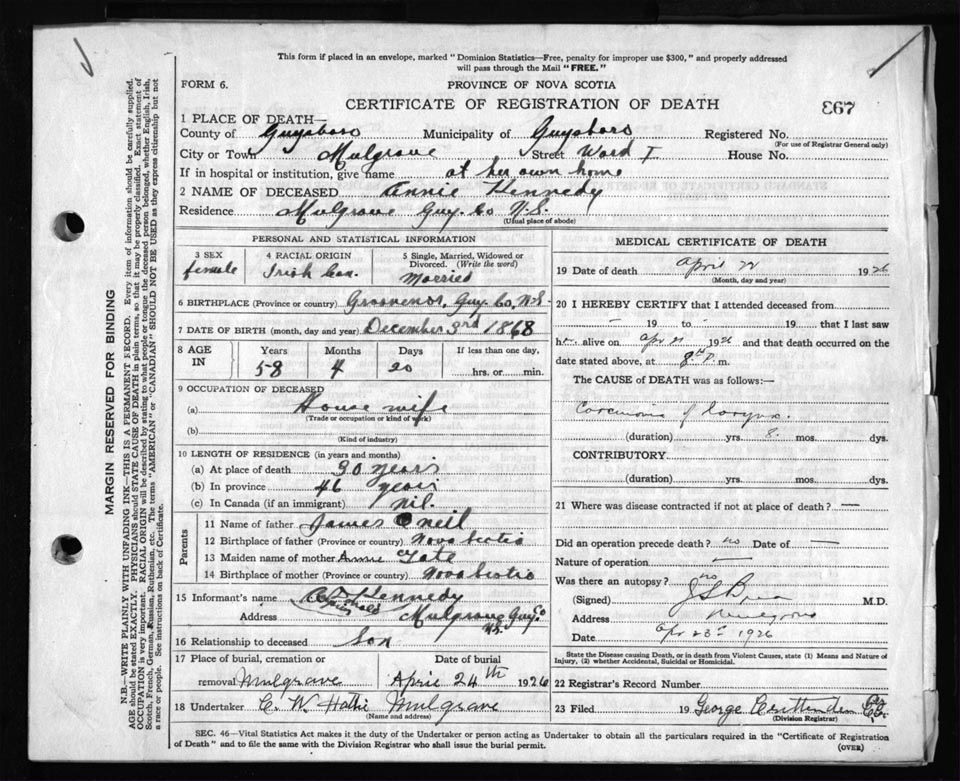 This form if placed in an envelope, marked "Dominion Statistics—Free, penalty for improper use $300," and properly addressed
will pass through the Mail "FREE."
FORM 6.
PROVINCE OF NOVA SCOTIA
CERTIFICATE OF REGISTRATION OF DEATH
867
1 PLACE OF DEATH—
County of Guysboro Municipality of Guysboro Registered No.
(For use of Registrar General only)
City or Town Mulgrave Street Ward I House No.
If in hospital or institution, give name at her own home
2 NAME OF DECEASED Annie Kennedy
Residence Mulgrave Guy. Co N.S.
(Usual place of abode)
PERSONAL AND STATISTICAL INFORMATION
3 SEX
female
4 RACIAL ORIGIN
Irish Can.
5 Single, Married, Widowed or
Divorced. (Write the word)
Married
6 BIRTHPLACE (Province or country) Grosvenor, Guy. Co, N.S.
7 DATE OF BIRTH (month, day and year) December 3rd 1868
8 AGE IN
Years Months Days If less than one day,
58 4 20 hrs. or min.
9 OCCUPATION OF DECEASED
(a) House wife
(Trade or occupation or kind of work)
(b)
(Kind of industry)
10 LENGTH OF RESIDENCE (in years and months)
(a) At place of death 30 years
(b) In province 46 years
(c) In Canada (if an immigrant) nil.
Parents
11 Name of father James O neil
12 Birthplace of father (Province or Country) Nova Scotia
13 Maiden name of mother Annie Tate
14 Birthplace of mother (Province or country) Nova Scotia
15 Informant's name Kennedy
Address Mulgrave Guy. Co
N.S.
16 Relationship to deceased Son
17 Place of burial, cremation or
removal Mulgrave
Date of burial
April 24th 1926
18 Undertaker C. W. Hattie Mulgrave
(Name and address)
MEDICAL CERTIFICATE OF DEATH
19 Date of death April 22 1926
(Month, day and year)
20 I HEREBY CERTIFY that I attended deceased from
— 19 to — 19 that I last saw
h alive on Apr 21 1926 and that death occurred on the
date stated above, at 8 P. m.
The CAUSE of DEATH was as follows:—
Carcinoma of larynx.
(duration) yrs. 8. mos. dys.
CONTRIBUTORY
(duration) yrs. mos. dys.
21 Where was disease contracted if not at place of death? —
Did an operation precede death? no Date of —
Nature of operation —
Was there an autopsy? no
(Signed) M.D.
Address Mulgrave
Date Apr 23rd 1926
State the Disease causing Death, or in Death from Violent Causes, state (1) Means and Nature of
Injury, (2) whether Accidental, Suicidal or Homicidal.
22 Registrar's Record Number
23 Filed 19 George Crittenden
(Division Registrar)
SEC. 46—Vital Statistics Act makes it the duty of the Undertaker or person acting as Undertaker to obtain all the particulars required in the "Certificate of Registration
of Death" and to file the same with the Division Registrar who shall issue the burial permit.
(OVER)
MARGIN RESERVED FOR BINDING
N.B.—WRITE PLAINLY WITH UNFADING INK—THIS IS A PERMANENT RECORD. Every item of information should be carefully supplied.
AGE should be stated EXACTLY. PHYSICIANS should STATE CAUSE OF DEATH in plain terms, so that it may be properly classified. Exact statement of
OCCUPATION is very important. RACIAL ORIGIN will be described by stating to what people or tongue the deceased person belonged, whether English, Irish,
Scotch, French, German, Russian, Ruthenian, etc. The terms "AMERICAN" or "CANADIAN" SHOULD NOT BE USED as they express citizenship but not
a race or people. See instructions on back of Certificate.